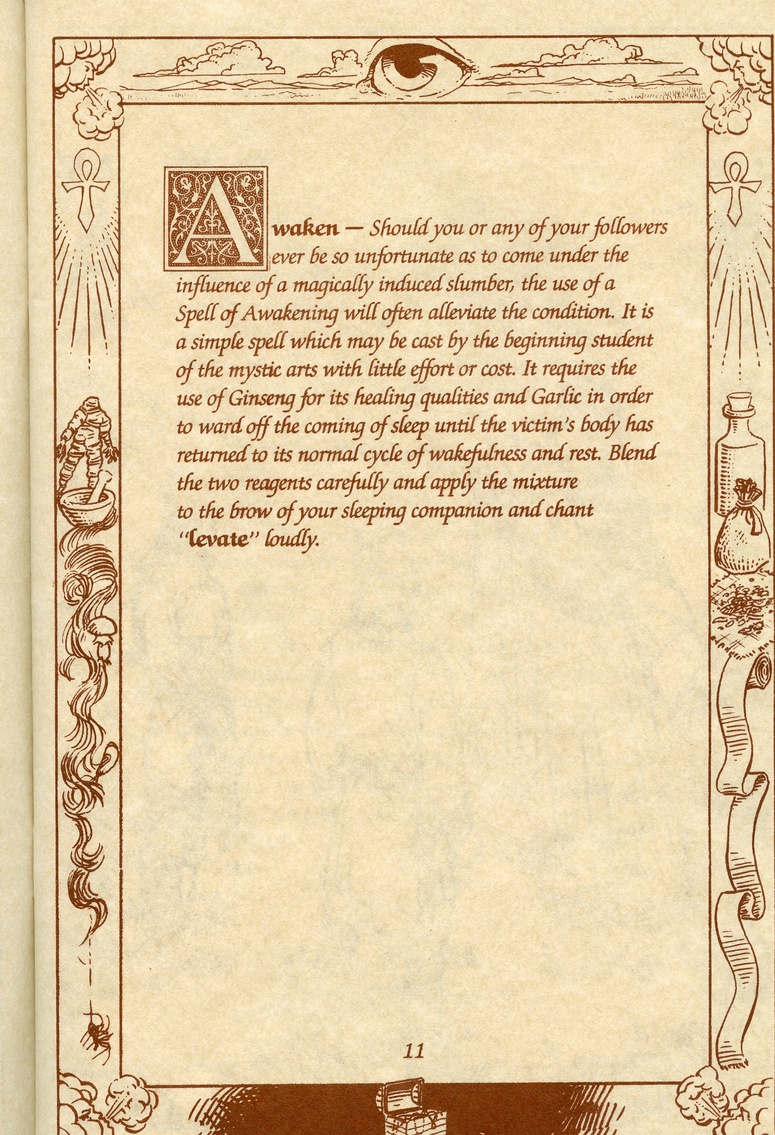 Awaken — Should you or any of your followers
ever be so unfortunate as to come under the
influence of a magically induced slumber, the use of a
Spell of Awakening will often alleviate the condition. It is
a simple spell which may be cast by the beginning student
of the mystic arts with little effort or cost. It requires the
use of Ginseng for its healing qualities and Garlic in order
to ward off the coming of sleep until the victim's body has
returned to its normal cycle of wakefulness and rest. Blend
the two reagents carefully and apply the mixture
to the brow of your sleeping companion and chant
“levate” loudly.
11